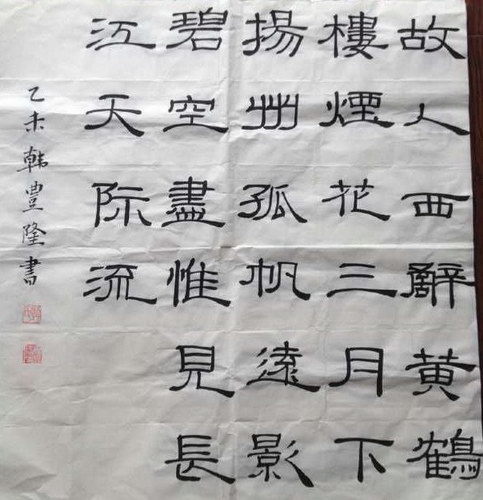 故人西辭黄鶴
樓煙花三月下
揚州孤帆遠影
碧空盡惟見長
江天际流
乙未韩豊隆書